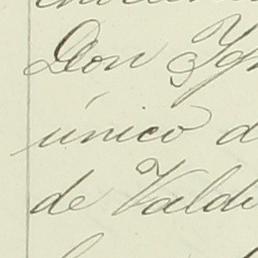 Don Ign
único d
de Valdi